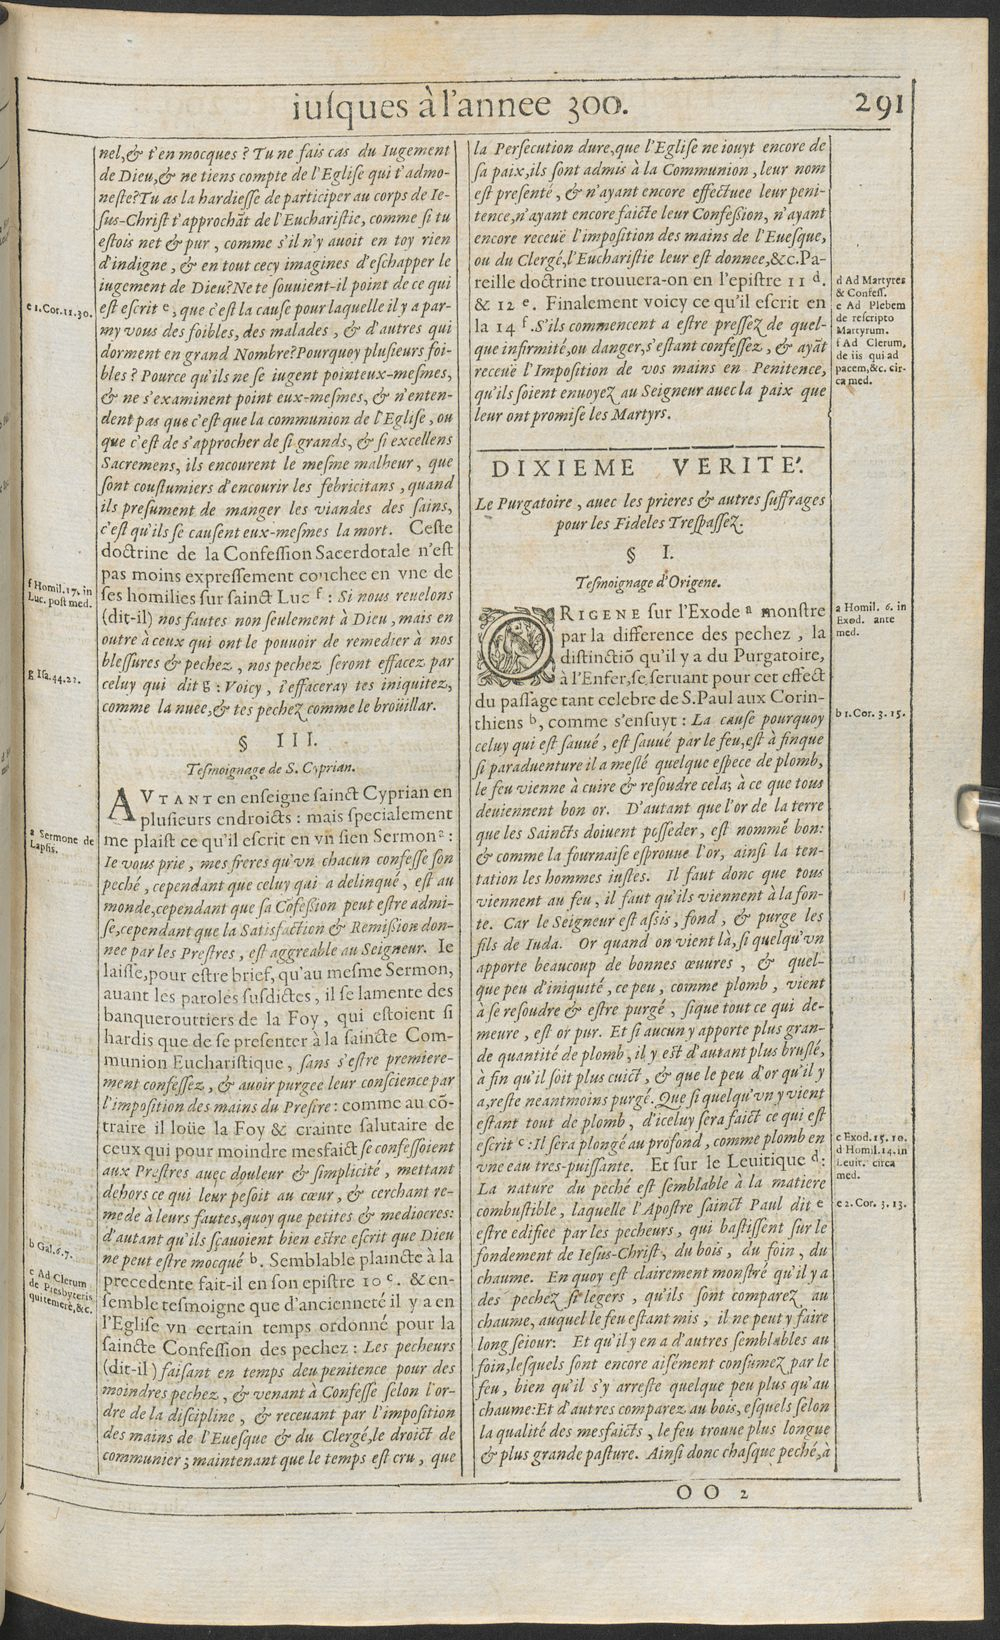 iuſques à l'annee 300.
291
nel,& t'en mocques ? Tu ne fais cas du Iugement
de Dieu,& ne tiens compte de l'Egliſe qui t'admo-
neſte?Tu as la hardieſſe de participer au corps de Ie-
ſus-Chriſt t'approchãt de l'Euchariſtie, comme ſi tu
eſtois net & pur , comme s'il n'y auoit en toy rien
d'indigne , & en tout cecy imagines d'eſchapper le
iugement de Dieu?Ne te ſouuient-il point de ce qui
eſt eſcrit e, que c'eſt la cauſe pour laquelle il y a par-
my vous des foibles, des malades , & d'autres qui
dorment en grand Nombre?Pourquoy pluſieurs foi-
bles ? Pource qu'ils ne ſe iugent point eux-meſmes,
& ne s'examinent point eux-meſmes, & n'enten-
dent pas que c'eſt que la communion de l'Egliſe , ou
que c'eſt de s'approcher de ſi grands, & ſi excellens
Sacremens, ils encourent le meſme malheur , que
ſont couſtumiers d'encourir les febricitans , quand
ils preſument de manger les viandes des ſains,
c'eſt qu'ils ſe cauſent eux-meſmes la mort. Ceſte
doctrine de la Confeſſion Sacerdotale n'eſt
pas moins expreſſement couchee en vne de
ſes homilies ſur ſainct Luc f : Si nous reuelons
(dit-il) nos fautes non ſeulement à Dieu , mais en
outre à ceux qui ont le pouuoir de remedier à nos
bleſſures & pechez , nos pechez ſeront effacez par
celuy qui dit g : Voicy , i'effaceray tes iniquitez,
comme la nuee,& tes pechez comme le broüillar.
e 1.Cor.11.30.
f Homil.17. in
Luc. poſt med.
g Iſa.44.22.
§ III.
Teſmoignage de S. Cyprian.
AVTANT en enſeigne ſainct Cyprian en
pluſieurs endroicts : mais ſpecialement
me plaiſt ce qu'il eſcrit en vn ſien Sermon a :
Ie vous prie , mes freres qu'vn chacun confeſſe ſon
peché , cependant que celuy qui a delinqué , eſt au
monde,cependant que ſa Cõfeſſion peut eſtre admi-
ſe,cependant que la Satisfaction & Remiſſion don-
nee par les Preſtres , eſt aggreable au Seigneur. Ie
laiſſe,pour eſtre brief, qu'au meſme Sermon,
auant les paroles ſuſdictes , il ſe lamente des
banquerouttiers de la Foy , qui eſtoient ſi
hardis que de ſe preſenter à la ſaincte Com-
munion Euchariſtique , ſans s'eſtre premiere-
ment confeſſez , & auoir purgee leur conſcience par
l'impoſition des mains du Preſtre : comme au cõ-
traire il loüe la Foy & crainte ſalutaire de
ceux qui pour moindre mesfaict ſe confeſſoient
aux Preſtres auec douleur & ſimplicité , mettant
dehors ce qui leur peſoit au cœur , & cerchant re-
mede à leurs fautes,quoy que petites & mediocres:
d'autant qu'ils ſçauoient bien eſtre eſcrit que Dieu
ne peut eſtre mocqué b. Semblable plaincte à la
precedente fait-il en ſon epiſtre 10 c. & en-
ſemble teſmoigne que d'ancienneté il y a en
l'Egliſe vn certain temps ordonné pour la
ſaincte Confeſſion des pechez : Les pecheurs
(dit-il) faiſant en temps deu penitence pour des
moindres pechez , & venant à Confeſſe ſelon l'or-
dre de la diſcipline , & receuant par l'impoſition
des mains de l'Eueſque & du Clergé,le droict de
communier ; maintenant que le temps eſt cru , que
a Sermone de
Lapſis.
b Gal.6.7.
c Ad Clerum
de Presbyteris
qui temerè,&c.
la Perſecution dure,que l'Egliſe ne iouyt encore de
ſa paix,ils ſont admis à la Communion , leur nom
eſt preſenté , & n'ayant encore effectuee leur peni-
tence,n'ayant encore faicte leur Confeſſion, n'ayant
encore receuë l'impoſition des mains de l'Eueſque,
ou du Clergé,l'Euchariſtie leur eſt donnee,&c.Pa-
reille doctrine trouuera-on en l'epiſtre 11 d.
& 12 e. Finalement voicy ce qu'il eſcrit en
la 14 f .S'ils commencent a eſtre preſſez de quel-
que infirmité,ou danger,s'eſtant confeſſez , & ayãt
receuë l'Impoſition de vos mains en Penitence,
qu'ils ſoient enuoyez au Seigneur auec la paix que
leur ont promiſe les Martyrs.
d Ad Martyres
& Confeſſ.
e Ad Plebem
de reſcripto
Martyrum.
f Ad Clerum,
de iis qui ad
pacem,&c. cir-
ca med.
DIXIEME VERITE'.
Le Purgatoire , auec les prieres & autres ſuffrages
pour les Fideles Treſpaſſez.
§ I.
Teſmoignage d'Origene.
ORIGENE ſur l'Exode a monſtre
par la difference des pechez , la
diſtinctiõ qu'il y a du Purgatoire,
à l'Enfer,ſe ſeruant pour cet effect
du paſſage tant celebre de S.Paul aux Corin-
thiens b, comme s'enſuyt : La cauſe pourquoy
celuy qui eſt ſauué , eſt ſauué par le feu,eſt à fin que
ſi paraduenture il a meſlé quelque eſpece de plomb,
le feu vienne à cuire & reſoudre cela; à ce que tous
deuiennent bon or. D'autant que l'or de la terre
que les Saincts doiuent poſſeder , eſt nommé bon:
& comme la fournaiſe eſprouue l'or, ainſi la ten-
tation les hommes iuſtes. Il faut donc que tous
viennent au feu , il faut qu'ils viennent à la fon-
te. Car le Seigneur eſt aſsis , fond , & purge les
fils de Iuda. Or quand on vient là, ſi quelqu'vn
apporte beaucoup de bonnes œuures , & quel-
que peu d'iniquité , ce peu , comme plomb , vient
à ſe reſoudre & eſtre purgé , ſi que tout ce qui de-
meure , eſt or pur. Et ſi aucun y apporte plus gran-
de quantité de plomb , il y eſt d'autant plus bruſlé,
à fin qu'il ſoit plus cuict , & que le peu d'or qu'il y
a,reſte neantmoins purgé. Que ſi quelqu'vn y vient
eſtant tout de plomb , d'iceluy ſera faict ce qui eſt
eſcrit c : Il ſera plongé au profond , comme plomb en
vne eau tres-puiſſante. Et ſur le Leuitique d:
La nature du peché eſt ſemblable à la matiere
combuſtible , laquelle l'Apoſtre ſainct Paul dit e
eſtre edifiee par les pecheurs , qui baſtiſſent ſur le
fondement de Ieſus-Chriſt, du bois , du foin , du
chaume. En quoy eſt clairement monſtré qu'il y a
des pechez ſi legers , qu'ils ſont comparez au
chaume, auquel le feu eſtant mis , il ne peut y faire
long ſeiour: Et qu'il y en a d'autres ſemblables au
foin,leſquels ſont encore aiſément conſumez par le
feu , bien qu'il s'y arreſte quelque peu plus qu'au
chaume:Et d'autres comparez au bois, eſquels ſelon
la qualité des mesfaicts , le feu trouue plus longue
& plus grande paſture. Ainſi donc chaſque peché,à
a Homil. 6. in
Exod. ante
med.
b 1.Cor. 3. 15.
c Exod. 15. 10.
d Homil. 14. in
Leuit. circa
med.
e 2. Cor. 3. 13.
OO 2